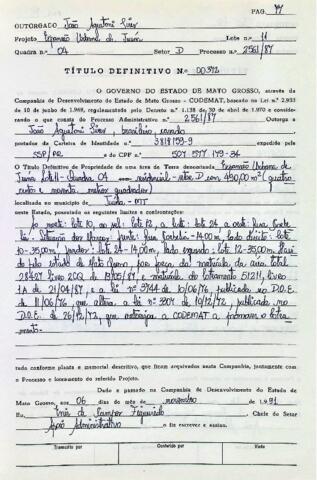 PAG. 44
OUTORGADO João Agostoni
Projeto Expansão Urbana de Juína Lote n.º 11
Quadra n.º 04 Setor D Processo n.º 2561/87
TÍTULO DEFINITIVO N.º 00.392
O GOVERNO DO ESTADO DE MATO GROSSO, através da
Companhia de Desenvolvimento do Estado de Mato Grosso - CODEMAT, baseado na Lei n.º 2.933
de 10 de junho de 1968, regulamentada pelo Decreto n.º 1.138 de 30 de abril de 1970 e considerando
o que consta do Processo Administrativo n.º 2561/87 Outorga a
João Agostoni brasileiro, casado
portador da Carteira de Identidade n.º 3.818.159-9 expedida pelo
SSP/PR e do CPF n.º 507 577 149-34
O Título Definitivo de Propriedade de uma área de Terra denominada Expansão Urbana de
Juína Lote 11 - Quadra 04 residencial - setor D com 490,00 m² (quatro
centos e noventa metros quadrados)
localizada no município de Juína - MT
neste Estado, possuindo os seguintes limites e confrontações:
Ao norte: lote 10, ao sul: lote 12, a leste: lote 24 a oeste: Rua
frente: Rua 14,00m, lado direito: lote
10 - 35,00m, fundos: lote 24 - 14,00m, lado esquerdo: lote 12 - 35,00m.
matrícula da área total
28487 livro 2CQ de 19/05/87, e matrícula do loteamento 51211, livro
1A de 21/04/87, e a lei nº 3744 de 10/06/76, publicada no D.O.E.
de 11/06/76, que altera a lei nº 3307 de 18/12/72, publicada no
D.O.E. de 26/12/72, que autoriza a CODEMAT a promover o lotea-
mento.
tudo conforme planta e memorial descritivo, que ficam arquivados nesta Companhia, juntamente com
o Processo e loteamento do referido Projeto.
Dado e passado na Companhia de Desenvolvimento do Estado de
Mato Grosso, aos 06 dias do mês de novembro de 1.991
Eu, Inês de Campos Figueiredo Chefe do Setor
Apoio Administrativo o fiz escrever e assino.
Transcrito por Conferido por Visto